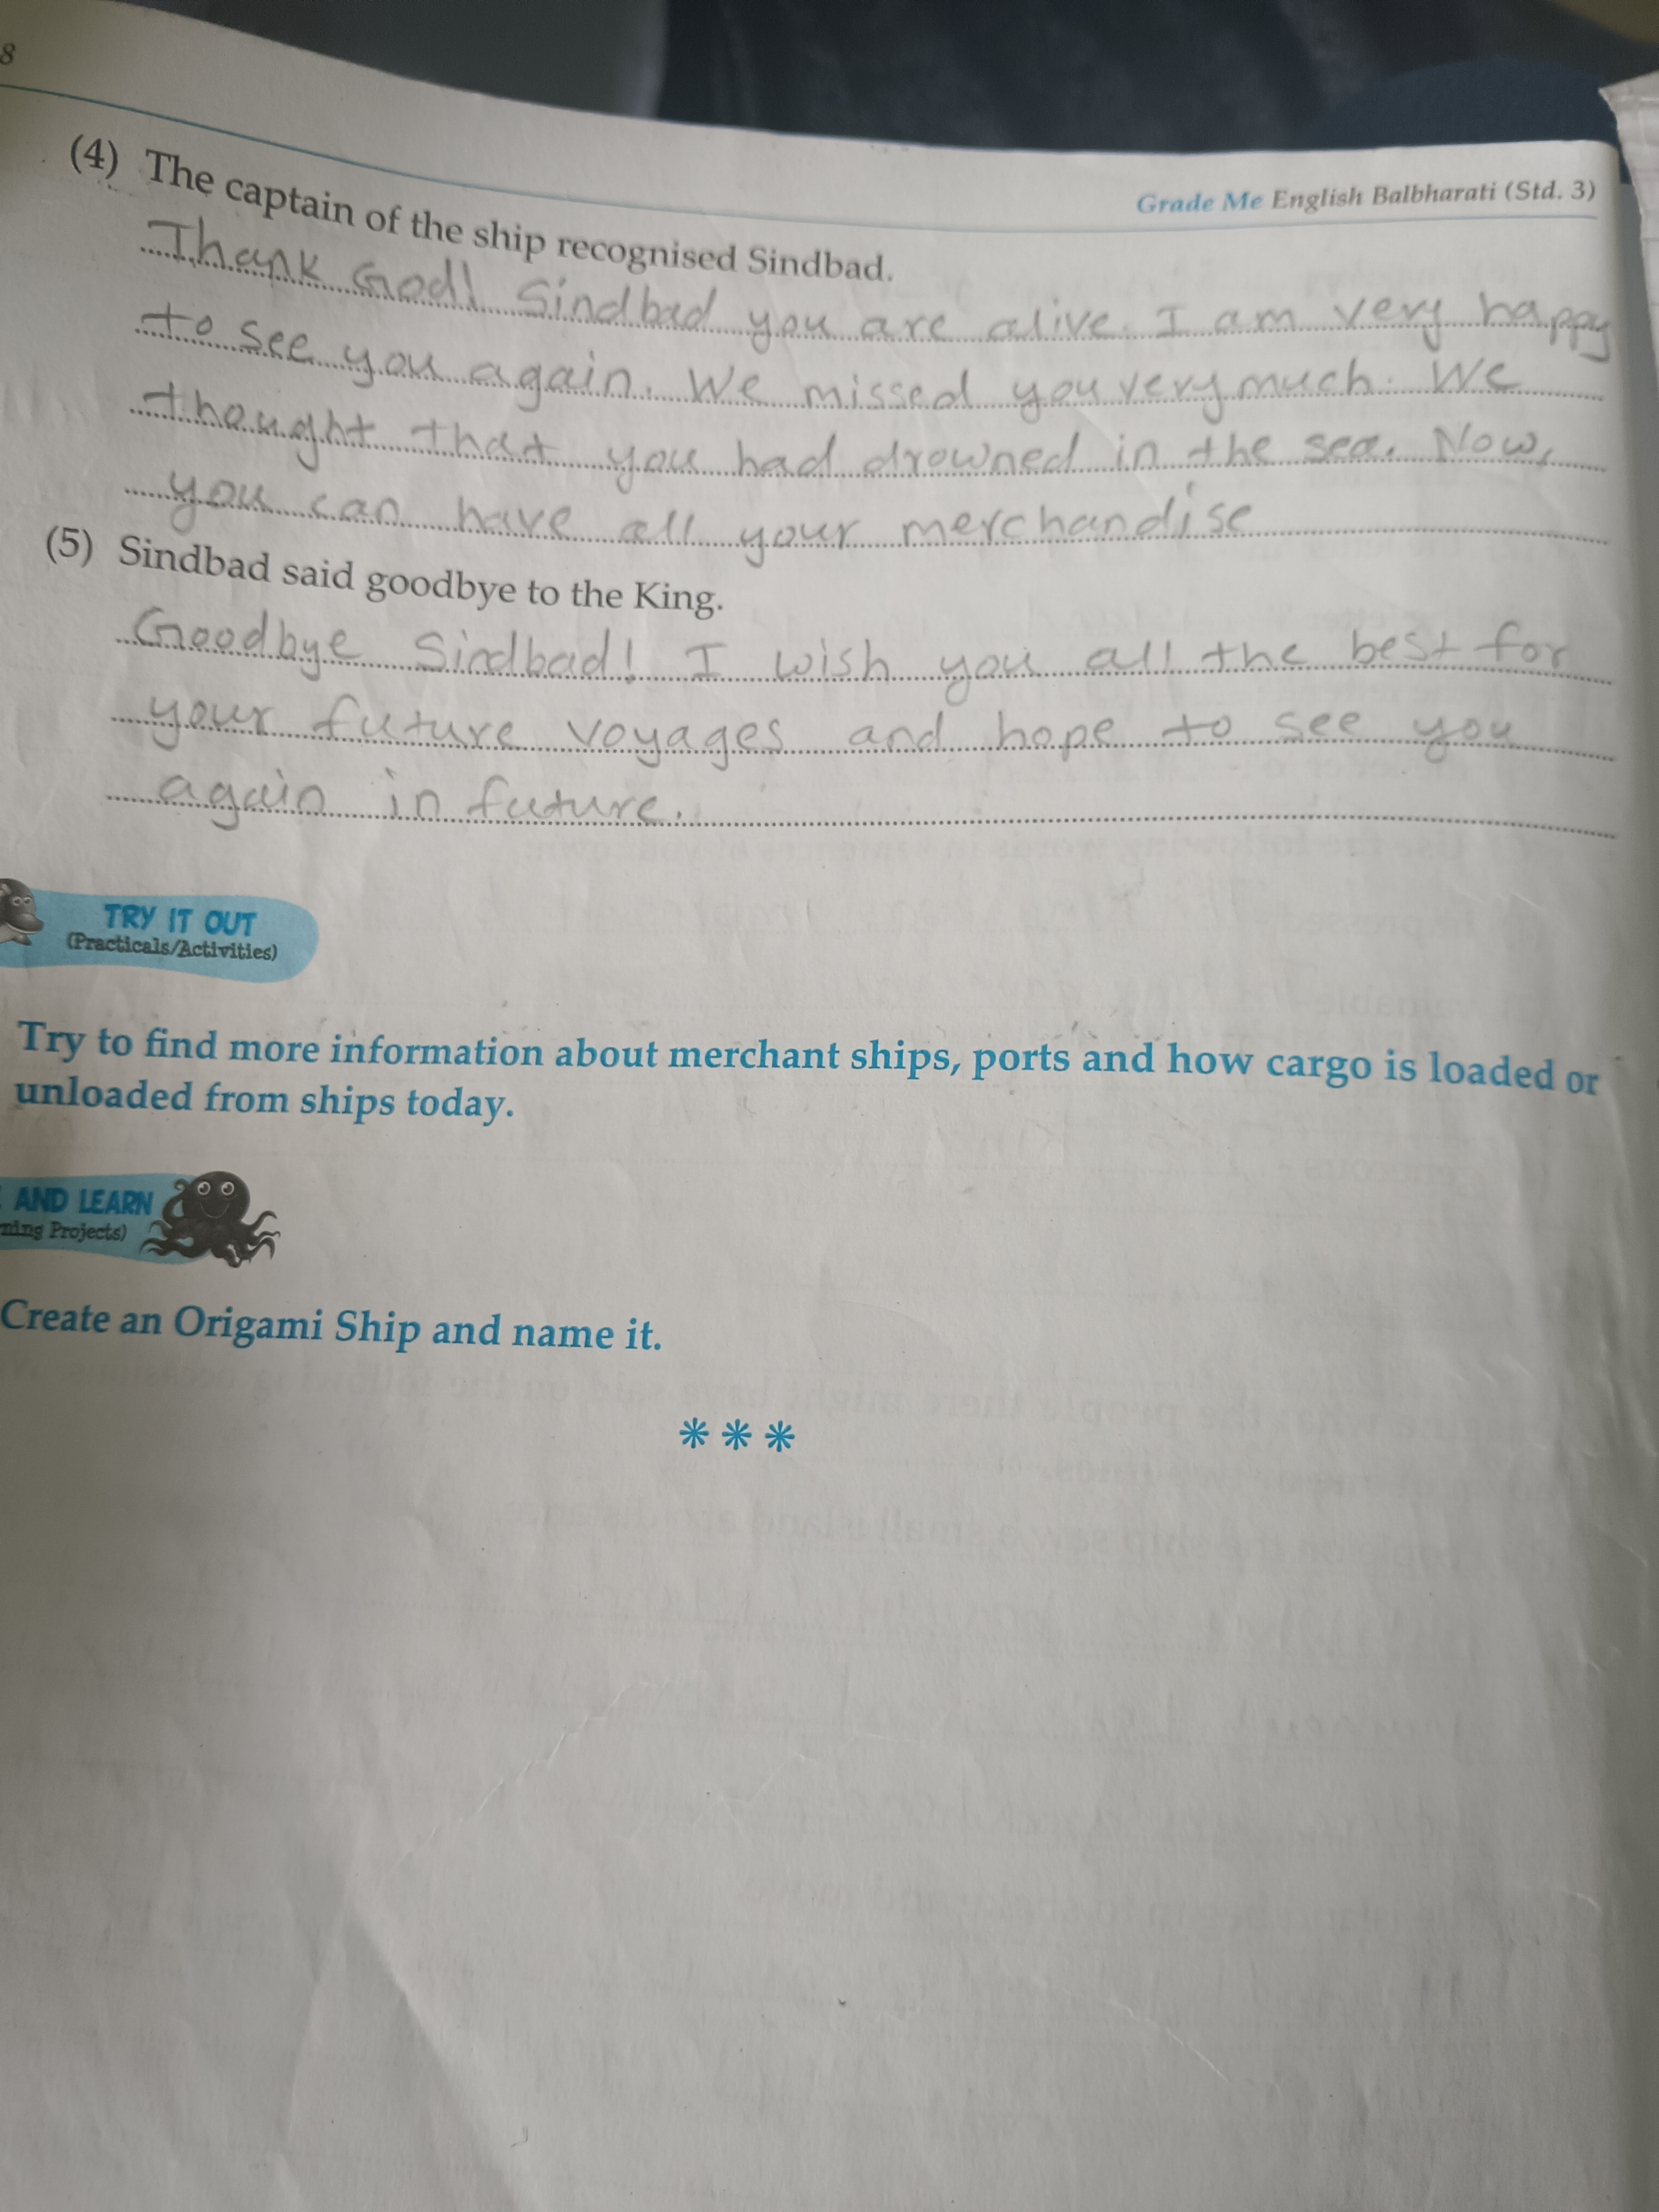 8
Grade Me English Balbharati (Std. 3)
(4) The captain of the ship recognised Sindbad.
Thank God! Sindbad you are alive. I am very happy
to see you again. We missed you very much. We
thought that you had drowned in the sea. Now,
you can have all your merchandise
(5) Sindbad said goodbye to the King.
Goodbye Sindbad! I wish you all the best for
your future voyages and hope to see you
again in future.
TRY IT OUT
(Practicals/Activities)
Try to find more information about merchant ships, ports and how cargo is loaded or
unloaded from ships today.
AND LEARN
Projects)
Create an Origami Ship and name it.